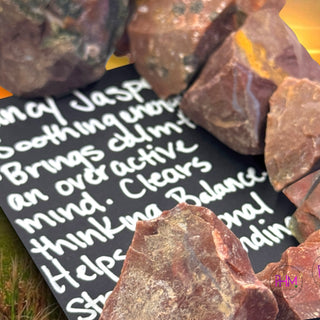 ncy Jasp
Soothing
Brings calm t
an over active
mind. Clears
thinking. Balance
Helps onal
St nding
HM